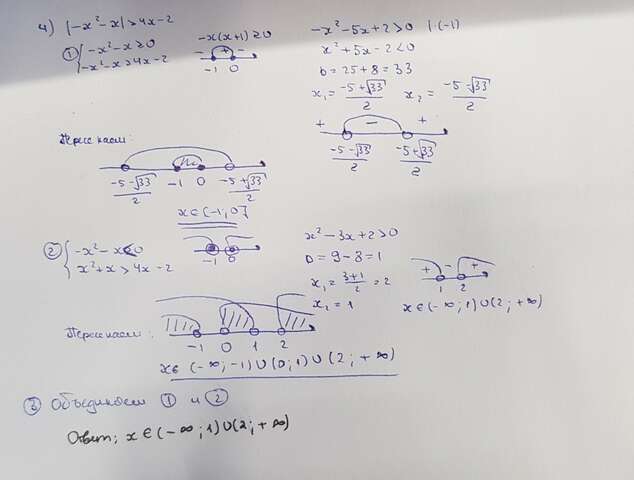 4) |-x²-x|>4x-2
① { -x²-x≥0
-x²-x>4x-2
-x(x+1)≥0
- + -
-1 0
-x²-5x+2>0 |·(-1)
x²+5x-2<0
D=25+8=33
x₁=(-5+√33)/2 x₂=(-5-√33)/2
+ - +
(-5-√33)/2 (-5+√33)/2
Пересекаем:
(-5-√33)/2 -1 0 (-5+√33)/2
x∈[-1;0]
② { -x²-x<0
x²+x>4x-2
-1 0
x²-3x+2>0
D=9-8=1
x₁=(3+1)/2=2
x₂=1
+ - +
1 2
x∈(-∞;1)∪(2;+∞)
Пересекаем:
-1 0 1 2
x∈(-∞;-1)∪(0;1)∪(2;+∞)
③ Объединяем ① и ②
Ответ: x∈(-∞;1)∪(2;+∞)